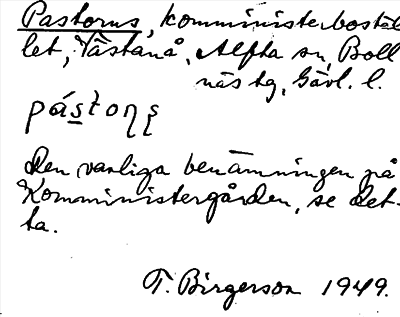 Pastorns, komministerbostäl
let, Västanå, Alfta sn, Boll
näs tg, Gävl. l.
pástoɳş
Den vanliga benämningen på
Komministergården, se det-
ta.
T. Birgerson 1949.